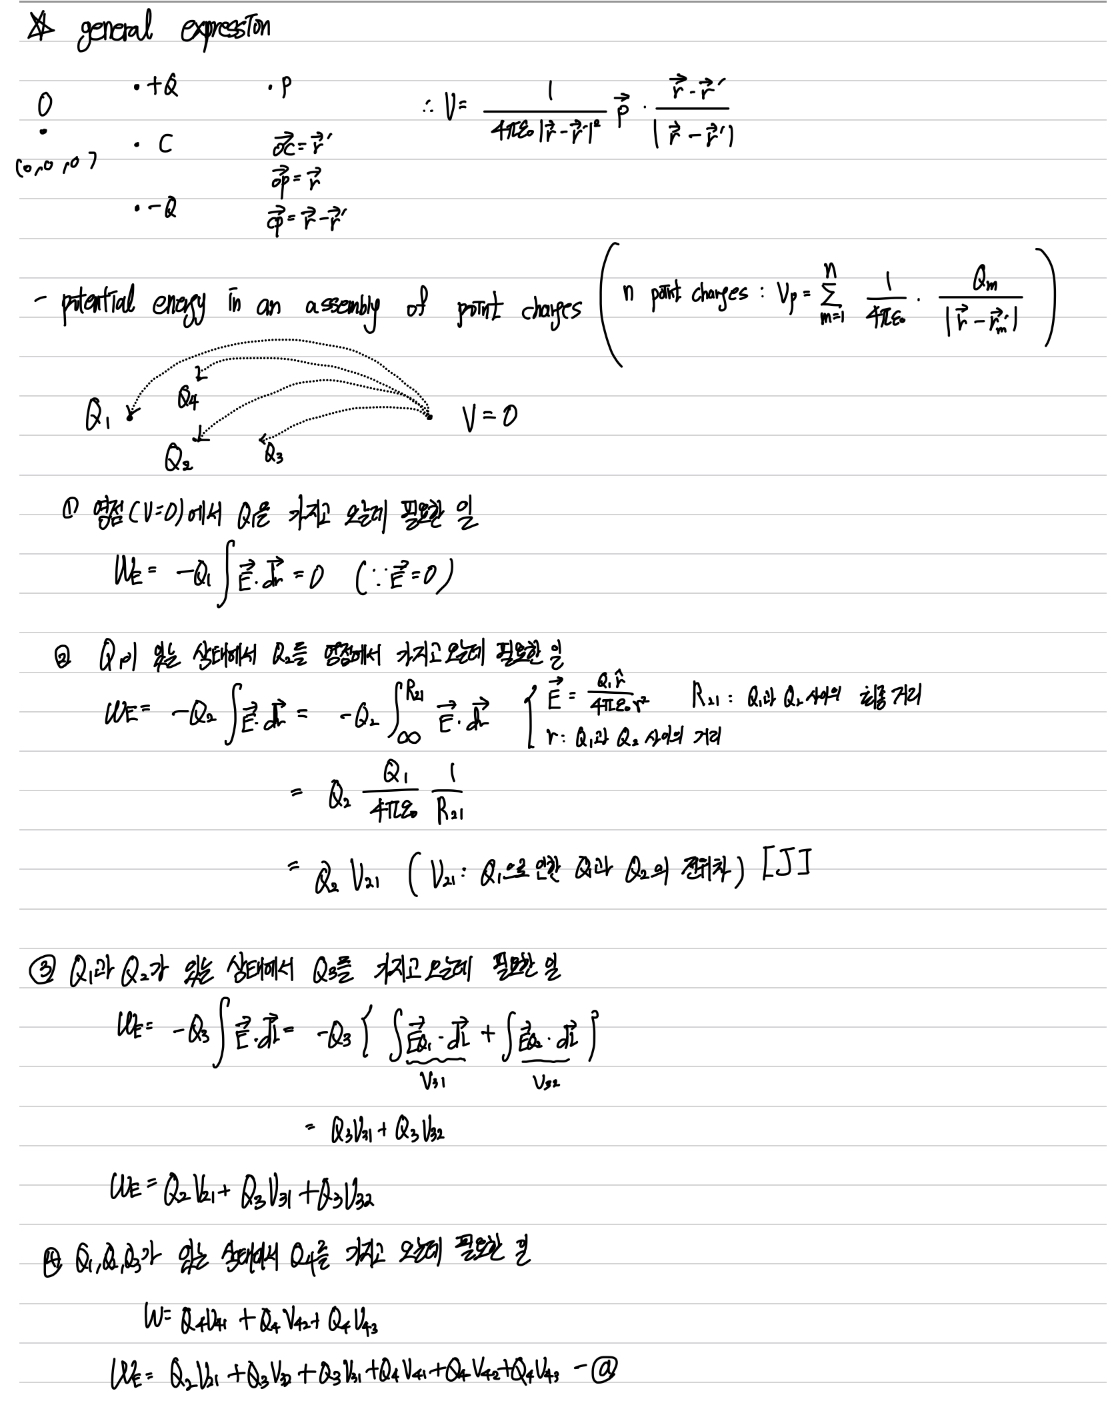 ☆ general expression
O
(0,0,0)
· +Q
· P
∴ V = 1/(4πε₀|r⃗-r⃗'|²) p⃗ · (r⃗-r⃗')/|r⃗-r⃗'|
· C
OC⃗ = r⃗'
OP⃗ = r⃗
· -Q
CP⃗ = r⃗-r⃗'
- potential energy in an assembly of point charges ( n point charges : Vp = Σ_{m=1}^{n} 1/(4πε₀) · Q_m/|r⃗-r⃗_m'| )
Q₁
Q₄
V=0
Q₂
Q₃
① 영점(V=0)에서 Q₁을 가지고 오는데 필요한 일
W_E = -Q₁∫E⃗·dr⃗ = 0 (∵E⃗=0)
② Q₁이 있는 상태에서 Q₂를 영점에서 가지고 오는데 필요한 일
W_E = -Q₂∫E⃗·dr⃗ = -Q₂∫_∞^{R₂₁} E⃗·dr⃗ { E⃗ = Q₁r̂/(4πε₀r²) R₂₁ : Q₁과 Q₂ 사이의 최종 거리
r : Q₁과 Q₂ 사이의 거리
= Q₂ Q₁/(4πε₀) 1/R₂₁
= Q₂ V₂₁ ( V₂₁ : Q₁으로 인한 Q₁과 Q₂의 전위차 ) [J]
③ Q₁과 Q₂가 있는 상태에서 Q₃를 가지고 오는데 필요한 일
W_E = -Q₃∫E⃗·dL⃗ = -Q₃ { ∫E⃗_{Q₁}·dL⃗ + ∫E⃗_{Q₂}·dL⃗ }
V₃₁ V₃₂
= Q₃V₃₁ + Q₃V₃₂
W_E = Q₂V₂₁ + Q₃V₃₁ + Q₃V₃₂
④ Q₁,Q₂,Q₃가 있는 상태에서 Q₄를 가지고 오는데 필요한 일
W = Q₄V₄₁ + Q₄V₄₂ + Q₄V₄₃
W_E = Q₂V₂₁ + Q₃V₃₂ + Q₃V₃₁ + Q₄V₄₁ + Q₄V₄₂ + Q₄V₄₃ - ⓐ